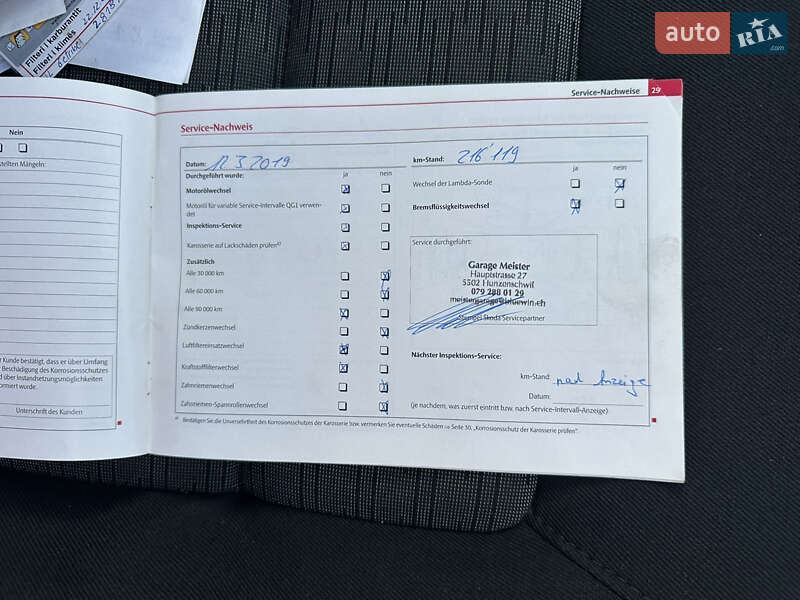 Filteri i karburantit
22.12
Filteri i klimës
auto RIA .com
Service-Nachweise 29
Nein
Service-Nachweis
Datum: 12.3.2019
km-Stand: 216'119
Durchgeführt wurde: ja nein
ja nein
Motorölwechsel
Wechsel der Lambda-Sonde
Motoröl für variable Service-Intervalle QG1 verwen-
det
Bremsflüssigkeitswechsel
Inspektions-Service
Karosserie auf Lackschäden prüfen
Zusätzlich
Alle 30 000 km
Alle 60 000 km
Alle 90 000 km
Zündkerzenwechsel
Luftfiltereinsatzwechsel
Kraftstofffilterwechsel
Zahnriemenwechsel
Zahnriemen-Spannrollenwechsel
Service durchgeführt:
Garage Meister
Hauptstrasse 27
5502 Hunzenschwil
079 288 01 29
meistergarage@bluewin.ch
Stempel Škoda Servicepartner
Nächster Inspektions-Service:
km-Stand: nach Anzeige
Datum:
(je nachdem, was zuerst eintritt bzw. nach Service-Intervall-Anzeige)
Bestätigen Sie die Unversehrtheit des Korrosionsschutzes der Karosserie bzw. vermerken Sie eventuelle Schäden ⇒ Seite 30, „Korrosionsschutz der Karosserie prüfen".
stellten Mängeln:
r Kunde bestätigt, dass er über Umfang
Beschädigung des Korrosionsschutzes
d über Instandsetzungsmöglichkeiten
ormiert wurde.
Unterschrift des Kunden